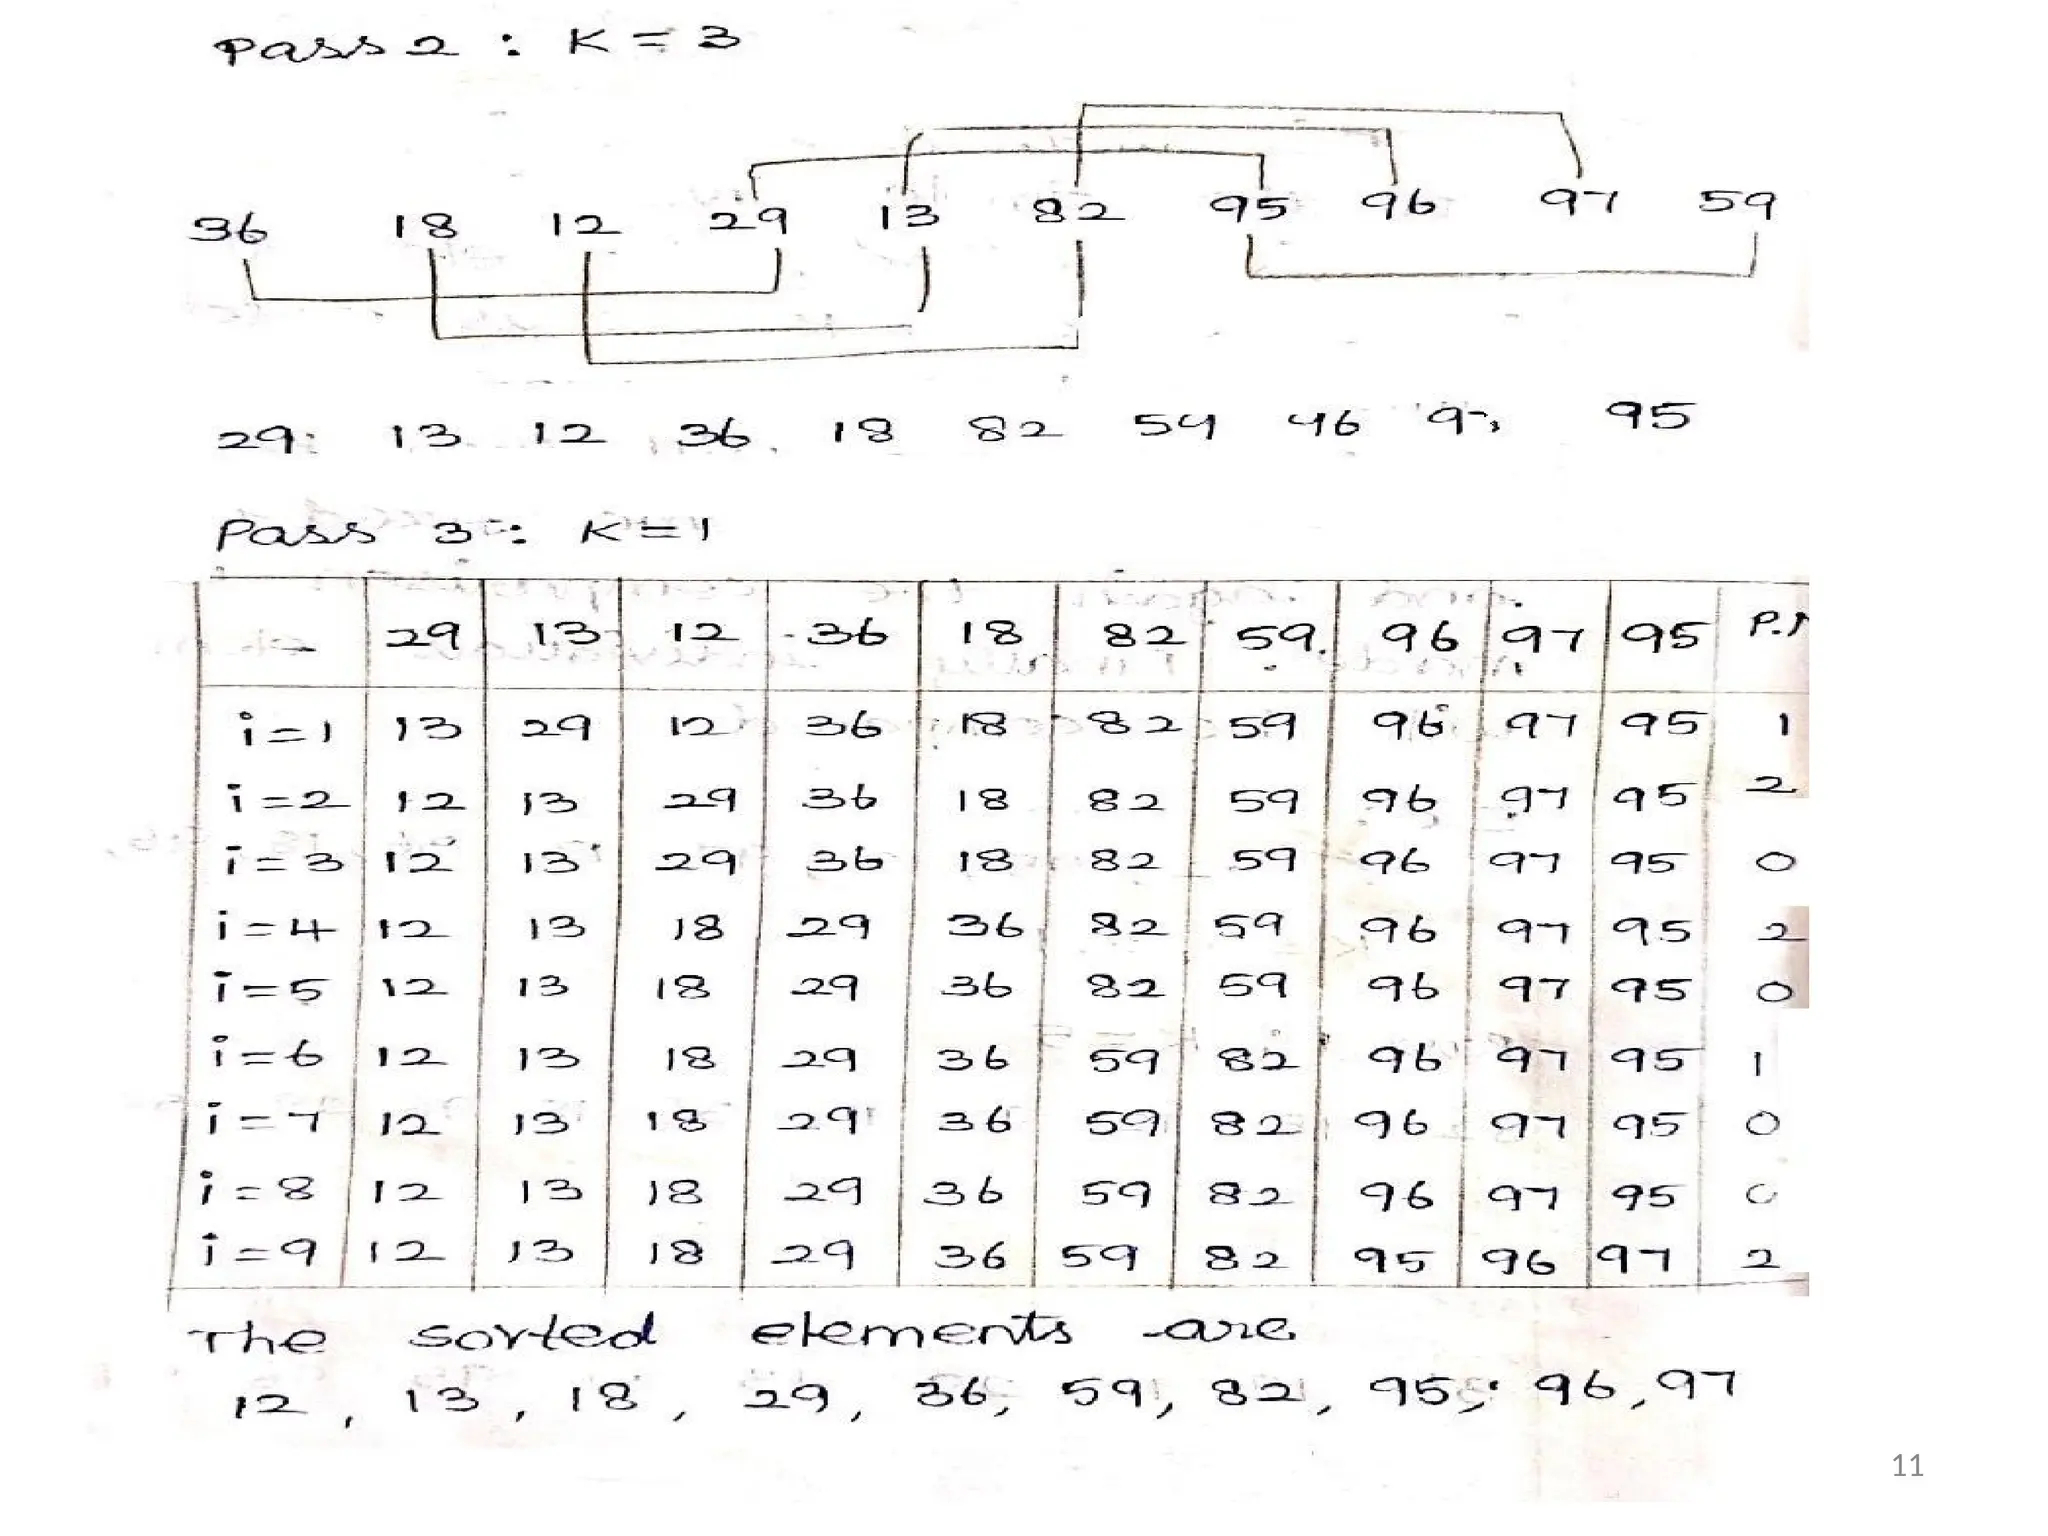 Pass 2 : K = 3
36 18 12 29 13 82 95 96 97 59
29 13 12 36 18 82 59 96 97 95
Pass 3 : K = 1
- 29 13 12 36 18 82 59 96 97 95
i=1 13 29 12 36 18 82 59 96 97 95 1
i=2 12 13 29 36 18 82 59 96 97 95 2
i=3 12 13 29 36 18 82 59 96 97 95 0
i=4 12 13 18 29 36 82 59 96 97 95 2
i=5 12 13 18 29 36 82 59 96 97 95 0
i=6 12 13 18 29 36 59 82 96 97 95 1
i=7 12 13 18 29 36 59 82 96 97 95 0
i=8 12 13 18 29 36 59 82 96 97 95 0
i=9 12 13 18 29 36 59 82 95 96 97 2
The sorted elements are
12, 13, 18, 29, 36, 59, 82, 95, 96, 97
11